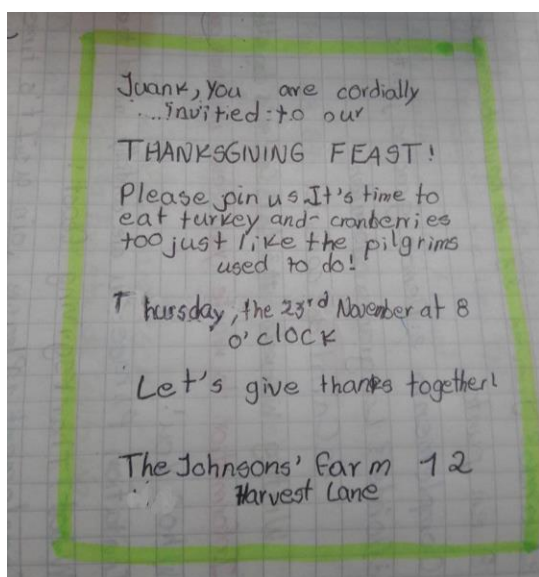 Juank, you are cordially
....invitied to our
THANKSGINING FEAST!
Please join us It's time to
eat turkey and cranberries
too just like the pilgrims
used to do!
Thursday, the 23rd November at 8
o'clock
Let's give thanks together!
The Johnsons' farm 12
Harvest Lane